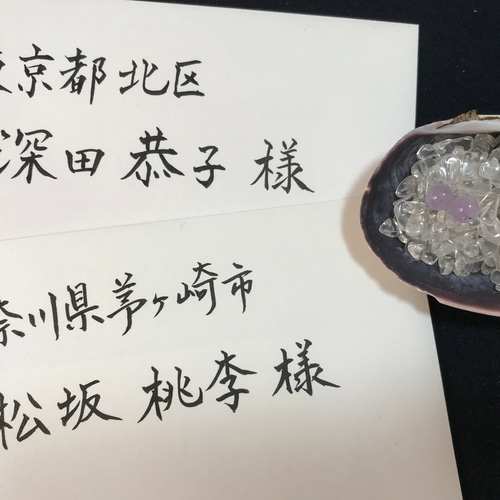 東京都北区
深田恭子様
奈川県茅ヶ崎市
松坂桃李様